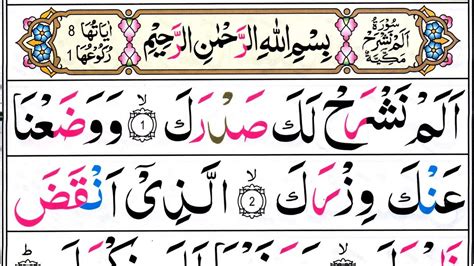 سُوْرَةُ اَلَمْ نَشْرَحْ مَكِّيَّةٌ
بِسْمِ اللّٰهِ الرَّحْمٰنِ الرَّحِيْمِ
اٰيَاتُهَا 8 رُكُوْعُهَا 1
اَلَمْ نَشْرَحْ لَكَ صَدْرَكَ ۙ 1 وَوَضَعْنَا
عَنْكَ وِزْرَكَ ۙ 2 الَّذِیْۤ اَنْقَضَ